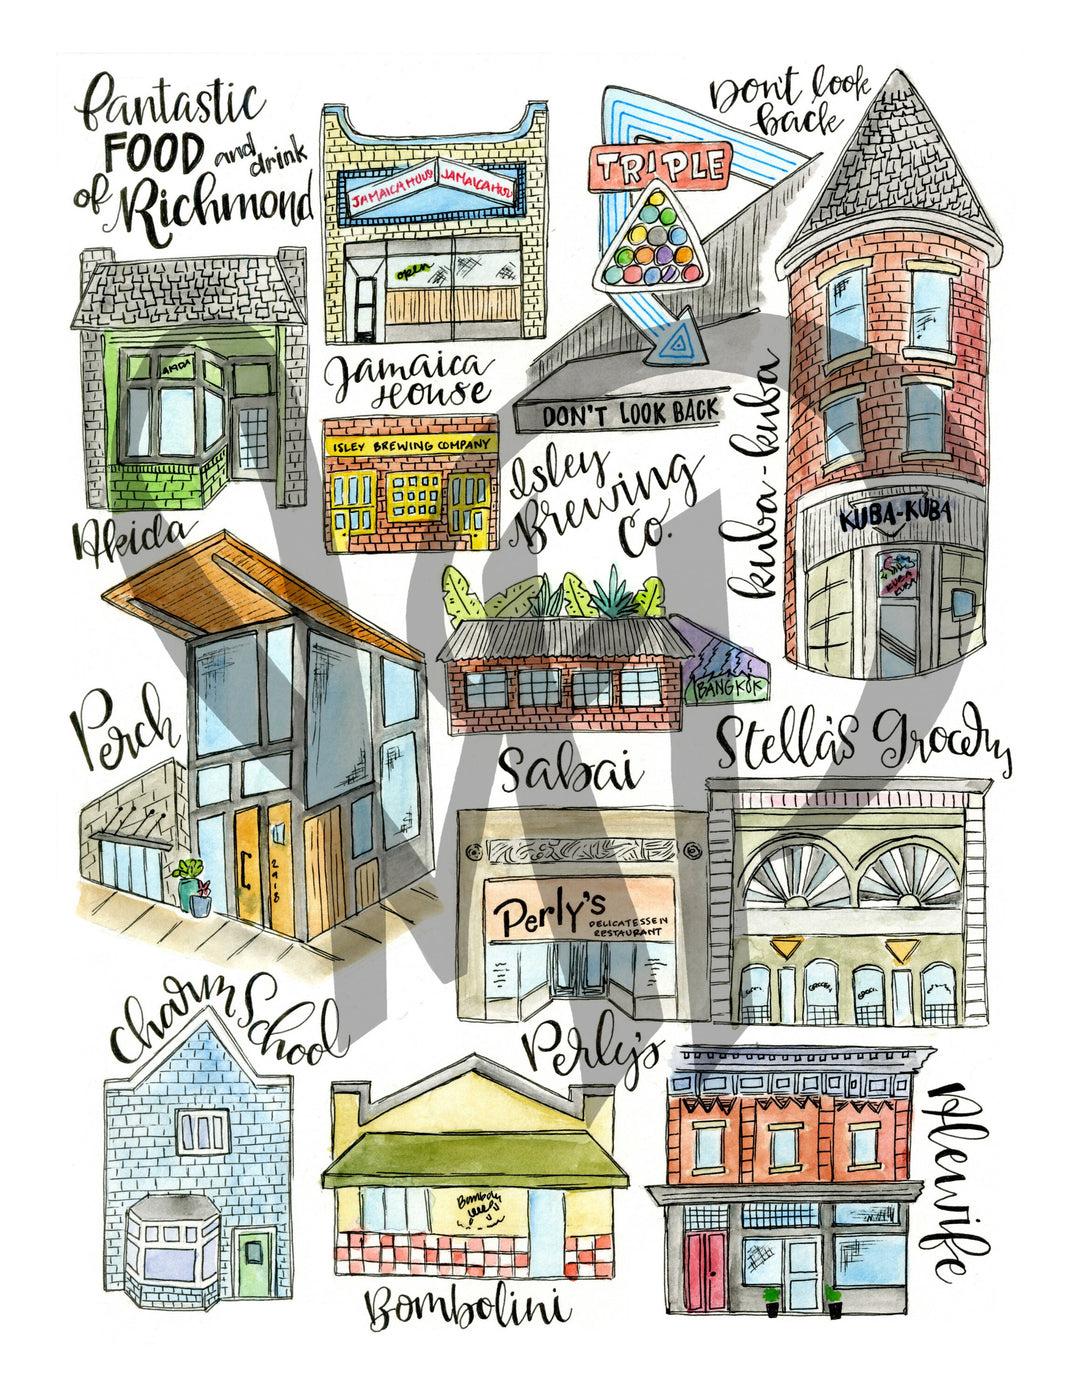 fantastic
FOOD and drink
of Richmond
JAMAICA HOUSE JAMAICA
open
Jamaica
House
TRIPLE
Don't look
back
DON'T LOOK BACK
AKIDA
Akida
ISLEY BREWING COMPANY
Isley
Brewing
Co.
kuba-kuba
KUBA-KUBA
KUBA
KUBA
Perch
2918
BANGKOK
Sabai
Stella's Grocery
Perly's
DELICATESSEN
RESTAURANT
GROCERY
Perly's
Charm School
Bombolini
Alewife